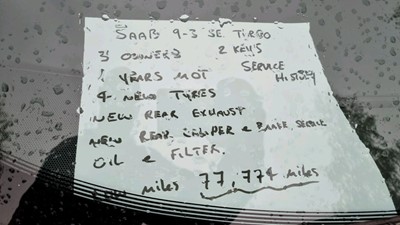 SAAB 9-3 SE TIRGO
3 OWNERS 2 KEYS
1 YEARS MOT SERVICE HISTORY
4 NEW TYRES
NEW REAR EXHAUST
NEW REAR CALIPER & BRAKE SERVICE
OIL & FILTER.
LOW MILES 77,774 MILES